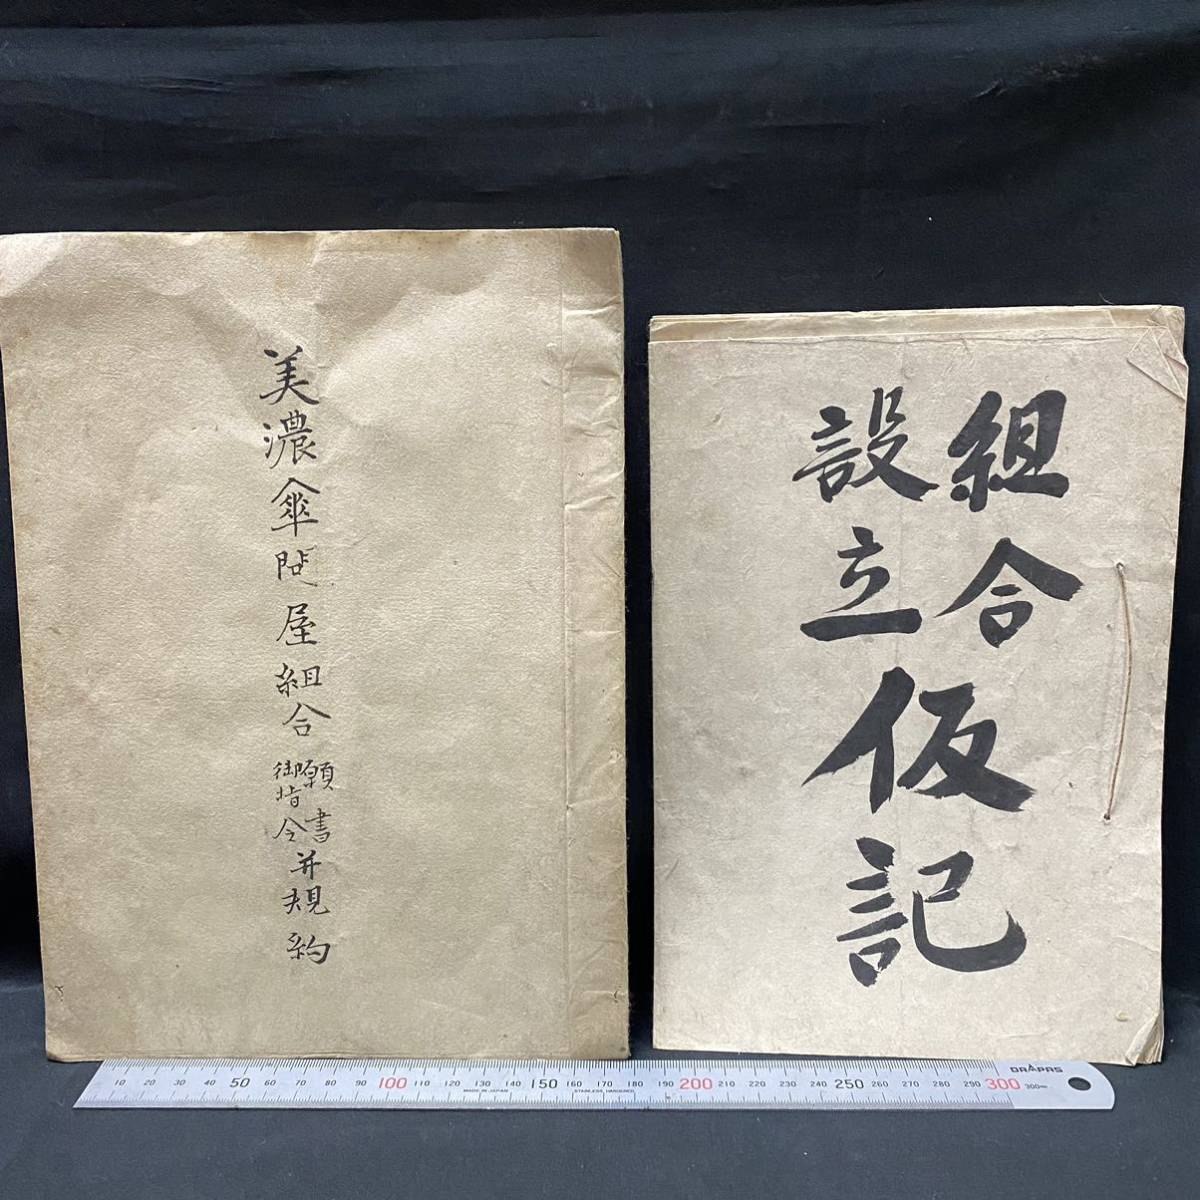 美濃傘問屋組合願書御指令并規約
組合
設立仮記
10 20 30 40 50 60 70 80 90 100 110 120 130 140 150 160 170 180 190 200 210 220 230 240 250 260 270 280 290 300 300mm
MADE IN JAPAN
STAINLESS HARDENED
DRAPAS